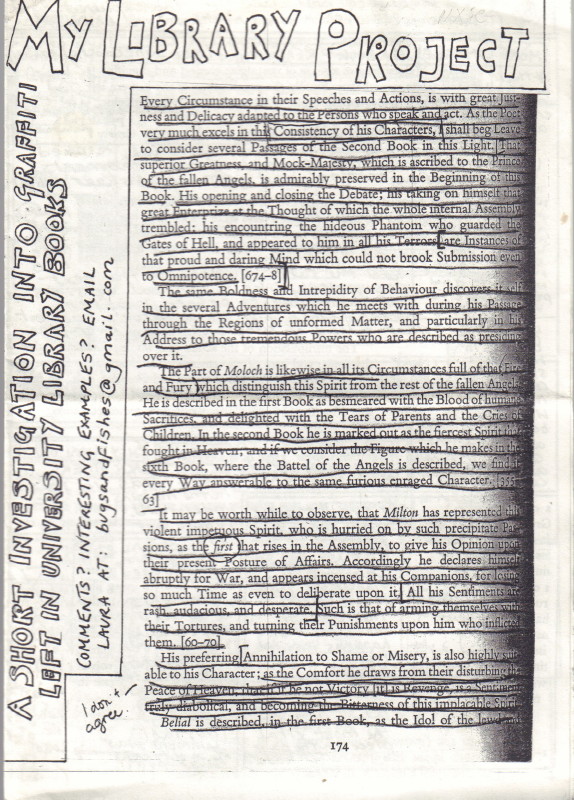 MY LIBRARY PROJECT
A SHORT INVESTIGATION INTO GRAFFITI
LEFT IN UNIVERSITY LIBRARY BOOKS
COMMENTS? INTERESTING EXAMPLES? EMAIL
LAURA AT: bugsandfishes@gmail.com
Every Circumstance in their Speeches and Actions, is with great Just-
ness and Delicacy adapted to the Persons who speak and act. As the Poet
very much excels in this Consistency of his Characters, I shall beg Leave
to consider several Passages of the Second Book in this Light. That
superior Greatness, and Mock-Majesty, which is ascribed to the Prince
of the fallen Angels, is admirably preserved in the Beginning of this
Book. His opening and closing the Debate; his taking on himself that
great Enterprize at the Thought of which the whole internal Assembly
trembled; his encountring the hideous Phantom who guarded the
Gates of Hell, and appeared to him in all his Terrors, are Instances of
that proud and daring Mind which could not brook Submission even
to Omnipotence. [674–8]
The same Boldness and Intrepidity of Behaviour discovers it self
in the several Adventures which he meets with during his Passage
through the Regions of unformed Matter, and particularly in his
Address to those tremendous Powers who are described as presiding
over it.
The Part of Moloch is likewise in all its Circumstances full of that Fire
and Fury which distinguish this Spirit from the rest of the fallen Angels.
He is described in the first Book as besmeared with the Blood of human
Sacrifices, and delighted with the Tears of Parents and the Cries of
Children. In the second Book he is marked out as the fiercest Spirit that
fought in Heaven; and if we consider the Figure which he makes in the
sixth Book, where the Battel of the Angels is described, we find it
every Way answerable to the same furious enraged Character. [355–
63]
It may be worth while to observe, that Milton has represented this
violent impetuous Spirit, who is hurried on by such precipitate Pas-
sions, as the first that rises in the Assembly, to give his Opinion upon
their present Posture of Affairs. Accordingly he declares himself
abruptly for War, and appears incensed at his Companions, for losing
so much Time as even to deliberate upon it. All his Sentiments are
rash, audacious, and desperate. Such is that of arming themselves with
their Tortures, and turning their Punishments upon him who inflicted
them. [60–70]
His preferring Annihilation to Shame or Misery, is also highly suit-
able to his Character; as the Comfort he draws from their disturbing the
Peace of Heaven, that if it be not Victory it is Revenge, is a Sentiment
truly diabolical, and becoming the Bitterness of this implacable Spirit.
Belial is described, in the first Book, as the Idol of the Lewd and
I don't
agree.
174